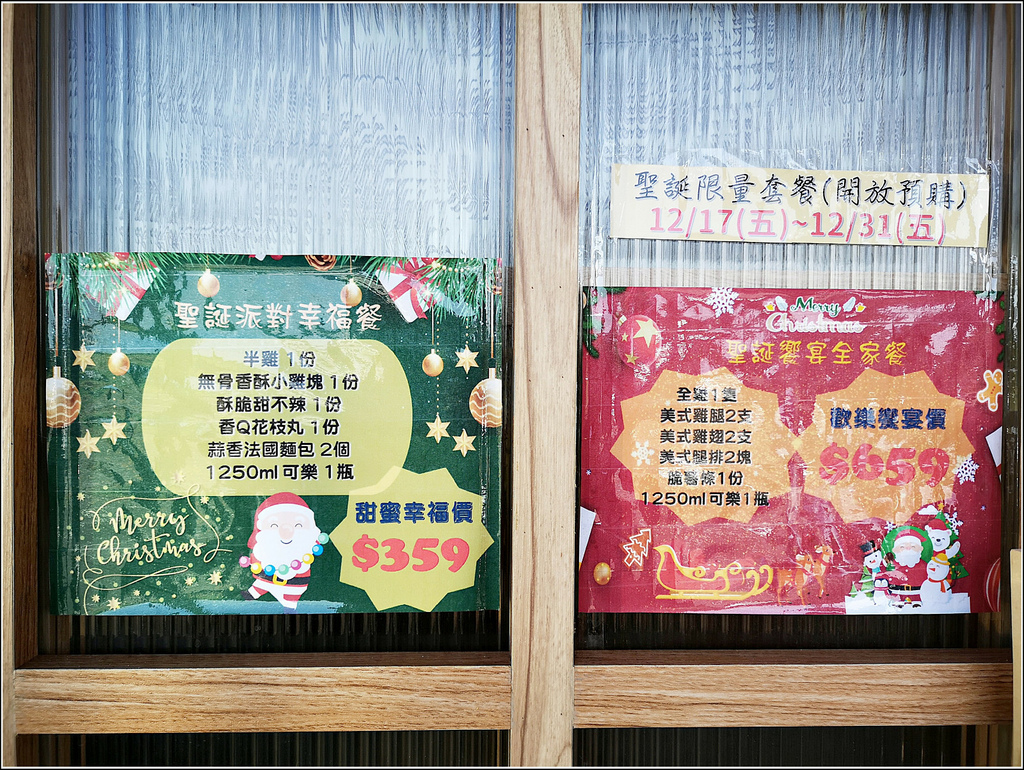 聖誕派對幸福餐
半雞 1份
無骨香酥小雞塊 1份
酥脆甜不辣 1份
香Q花枝丸 1份
蒜香法國麵包 2個
1250ml可樂 1瓶
Merry
Christmas
甜蜜幸福價
$359
聖誕限量套餐(開放預購)
12/17(五)~12/31(五)
Merry
Christmas
聖誕饗宴全家餐
全雞1隻
美式雞腿2支
美式雞翅2支
美式腿排2塊
脆薯條1份
1250ml可樂1瓶
歡樂饗宴價
$659